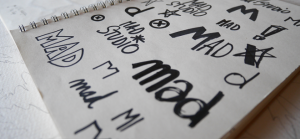 MAD
STUDIO
M
MAD
!
MAD
MAD
STUDIO
MAD
d
M
mad
mad
MI
d